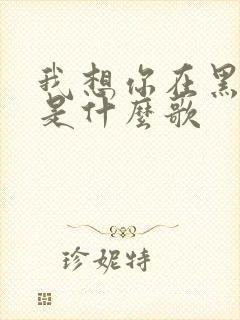 我想你在黑
是什麼歌
珍妮特